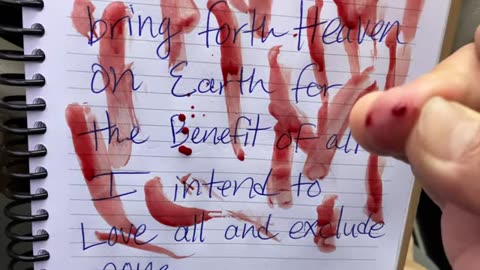 bring forth Heaven
On Earth for
the Benefit of all
I intend to
Love all and exclude
none